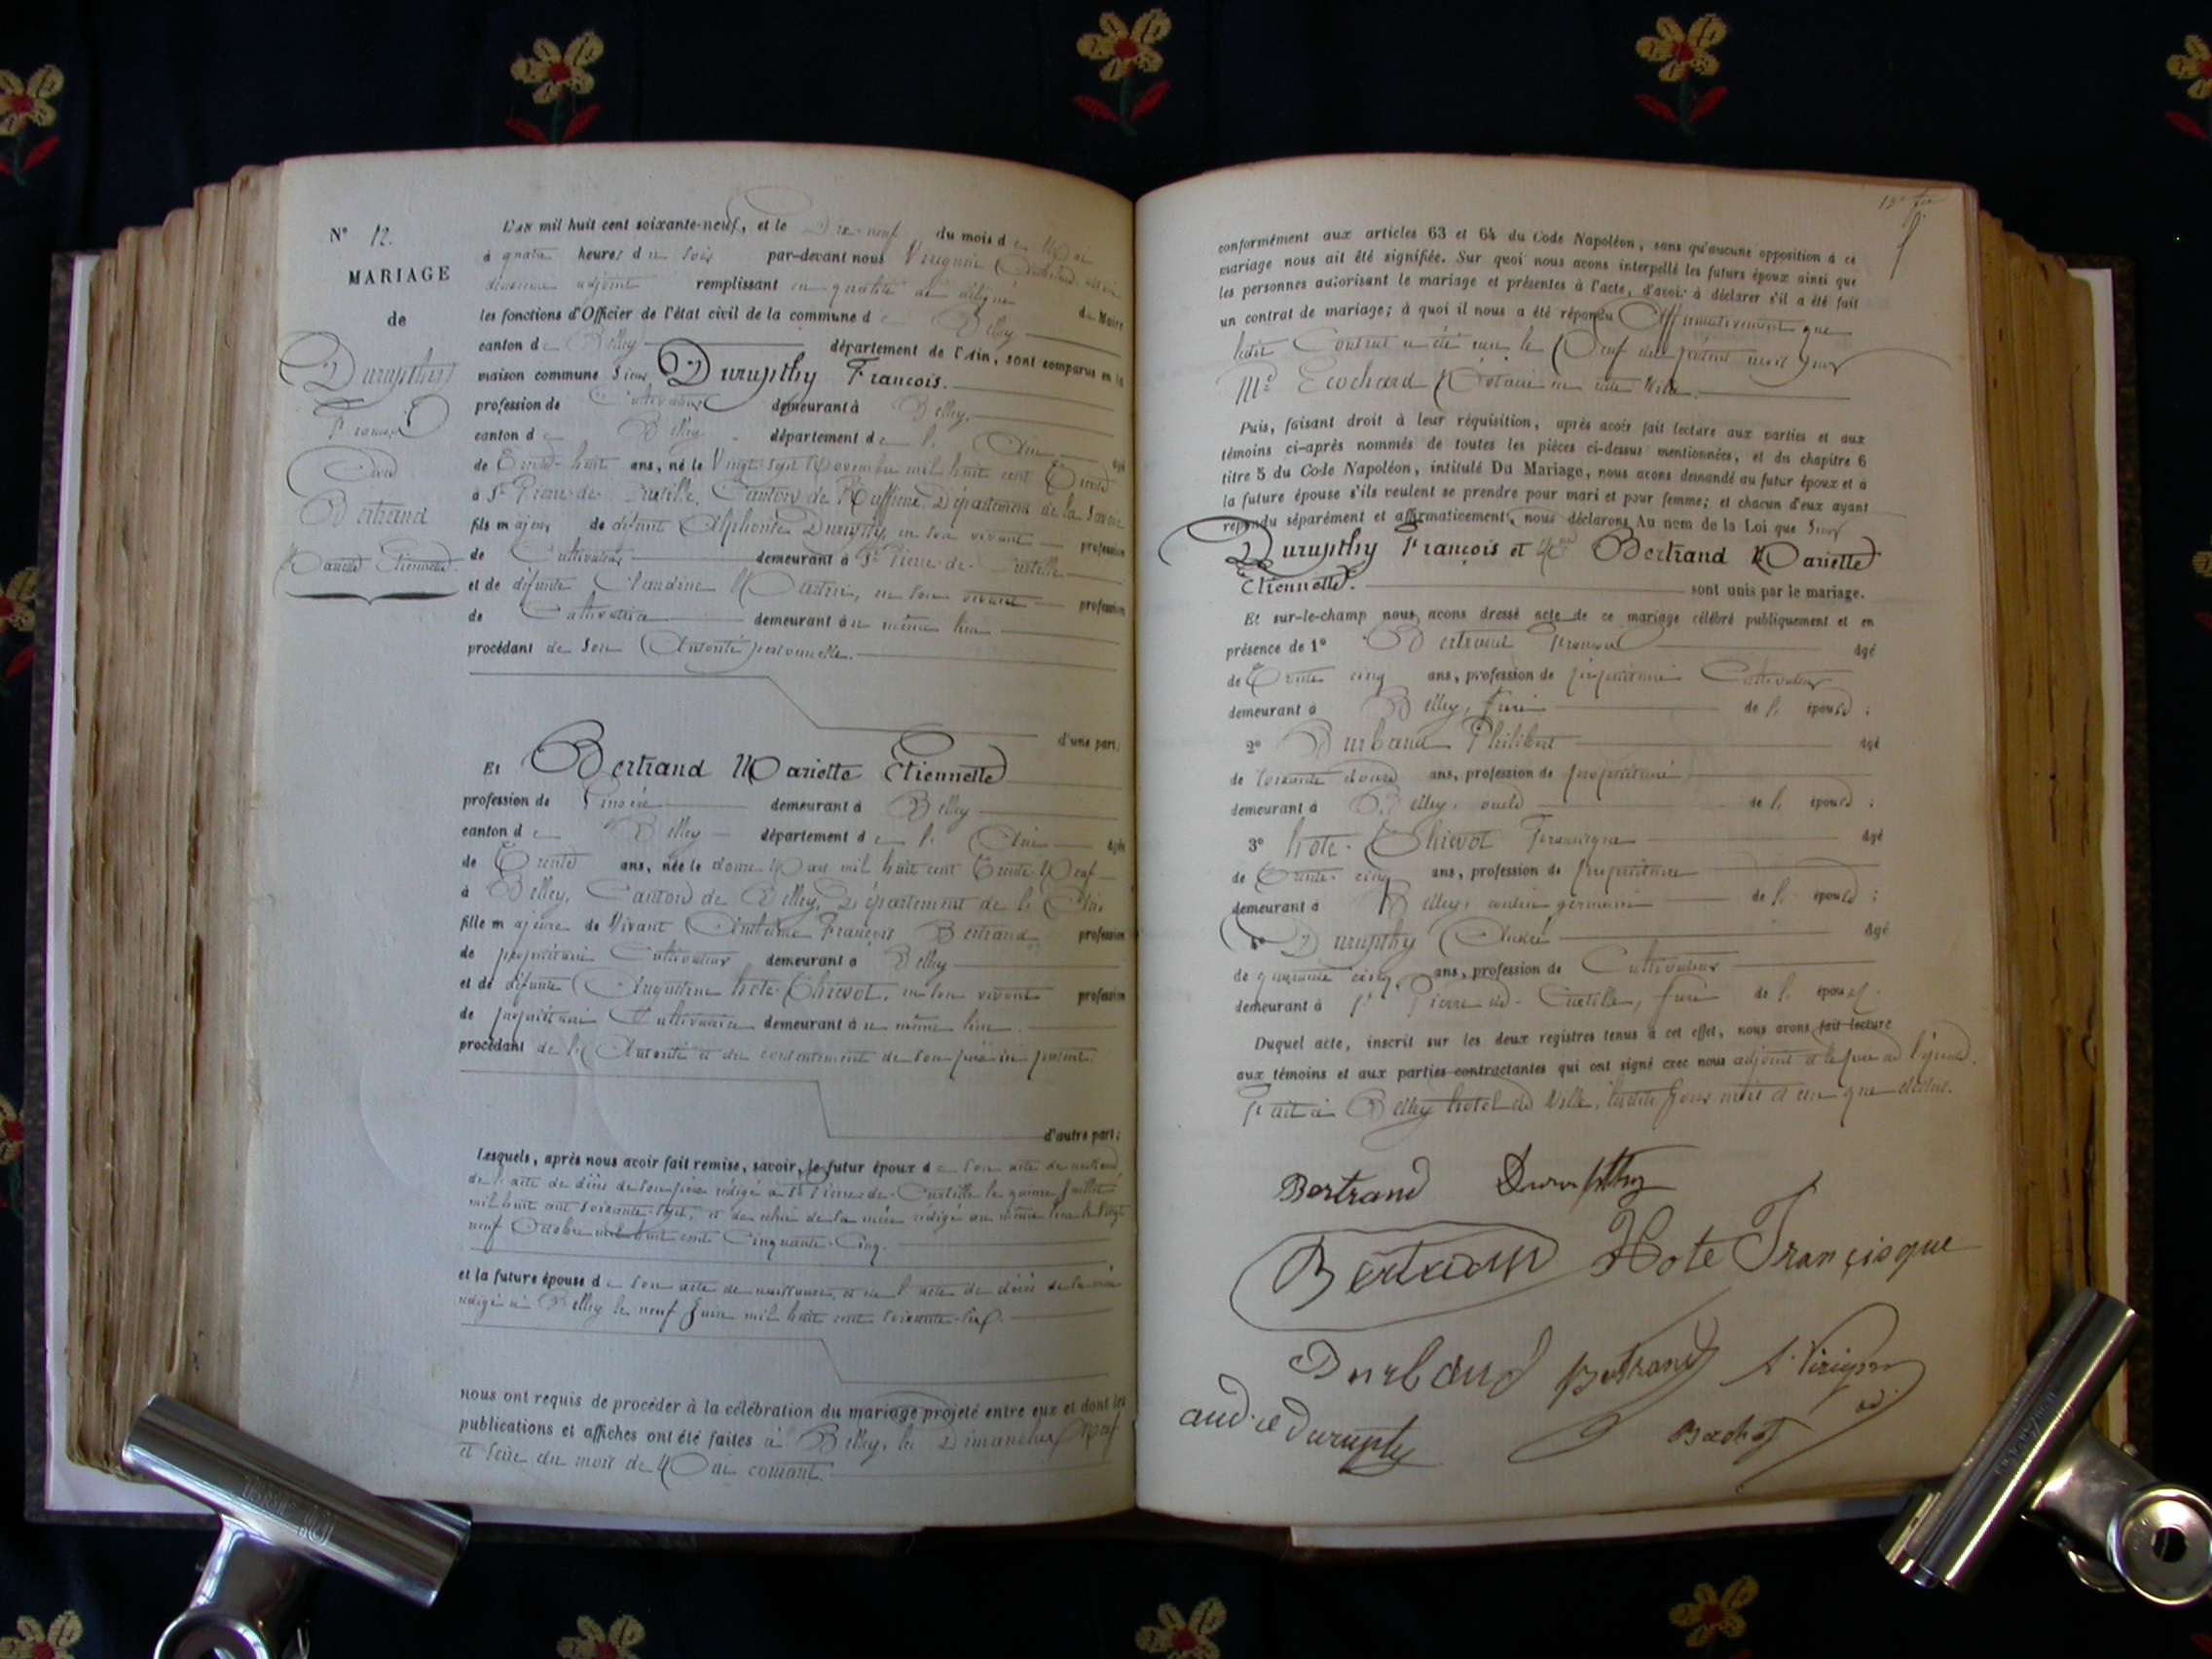 N° 12.
MARIAGE
de
Durupthy
François
Avec
Bertrand
Mariette Etiennette.
L'an mil huit cent soixante-neuf, et le Dix-neuf du mois de Mai
à quatre heures du soir par-devant nous
deuxième adjoint remplissant en qualité de délégué du Maire
les fonctions d'Officier de l'état civil de la commune de Belley
canton de Belley département de l'Ain, sont comparus en la
maison commune Sieur Durupthy François.
profession de Cultivateur demeurant à Belley.
canton de Belley département de l'Ain âgé
de Trente-huit ans, né le Vingt-sept Novembre mil huit cent Trente
à St Pierre-de-Curtille, Canton de Ruffieux, Département de la Savoie
fils majeur de défunt Alphonse Durupthy, en son vivant profession
de Cultivateur demeurant à St Pierre-de-Curtille
et de défunte Claudine Martin, en son vivant profession
de Cultivatrice demeurant au même lieu
procédant de son Autorité personnelle.
d'une part;
Et Bertrand Mariette Etiennette
profession de Lingère demeurant à Belley
canton de Belley département de l'Ain âgée
de Trente ans, née le douze Mars mil huit cent Trente-Neuf
à Belley, Canton de Belley, Département de l'Ain
fille majeure de Vivant Anthelme François Bertrand profession
de propriétaire Cultivateur demeurant à Belley
et de défunte Augustine hote-Thievot, en son vivant profession
de propriétaire Cultivatrice demeurant au même lieu.
procédant de l'Autorité et du consentement de son père ici présent.
d'autre part;
Lesquels, après nous avoir fait remise, savoir, le futur époux de son acte de naissance,
de l'acte de décès de son père rédigé à St Pierre-de-Curtille le quinze Juillet
mil huit cent soixante-sept, et de celui de sa mère rédigé au même lieu le Vingt
neuf Octobre mil huit cent Cinquante-Cinq.
et la future épouse de son acte de naissance, et de l'acte de décès de sa mère
rédigé à Belley le neuf Juin mil huit cent soixante-six.
nous ont requis de procéder à la célébration du mariage projeté entre eux et dont les
publications et affiches ont été faites à Belley, les Dimanches Neuf
et seize du mois de Mai courant.
conformément aux articles 63 et 64 du Code Napoléon, sans qu'aucune opposition à ce
mariage nous ait été signifiée. Sur quoi nous avons interpellé les futurs époux ainsi que
les personnes autorisant le mariage et présentes à l'acte, d'avoir à déclarer s'il a été fait
un contrat de mariage; à quoi il nous a été répondu Affirmativement que
ledit Contrat a été reçu le Neuf du présent mois par
Me Ecochard Notaire en cette Ville.
Puis, faisant droit à leur réquisition, après avoir fait lecture aux parties et aux
témoins ci-après nommés de toutes les pièces ci-dessus mentionnées, et du chapitre 6
titre 5 du Code Napoléon, intitulé Du Mariage, nous avons demandé au futur époux et à
la future épouse s'ils veulent se prendre pour mari et pour femme; et chacun d'eux ayant
répondu séparément et affirmativement, nous déclarons Au nom de la Loi que Sieur
Durupthy François et Bertrand Mariette
Etiennette. sont unis par le mariage.
Et sur-le-champ nous avons dressé acte de ce mariage célébré publiquement et en
présence de 1° Bertrand François âgé
de Trente cinq ans, profession de propriétaire Cultivateur
demeurant à Belley, frère de l'épouse;
2° Durbaud Philibert âgé
de soixante douze ans, profession de propriétaire
demeurant à Belley, oncle de l'épouse;
3° hote-Thievot Francisque âgé
de Trente-cinq ans, profession de propriétaire
demeurant à Belley, cousin germain de l'épouse;
4° Durupthy André âgé
de quarante cinq ans, profession de Cultivateur
demeurant à St Pierre-de-Curtille, frère de l'époux.
Duquel acte, inscrit sur les deux registres tenus à cet effet, nous avons fait lecture
aux témoins et aux parties contractantes qui ont signé avec nous adjoint et le père de l'épouse.
Fait à Belley hotel de Ville, lesdits jour mois et an que dessus.
Bertrand Durupthy
Bertrand Hote Françisque
Durbaud Bertrand
andré Durupty Bachot